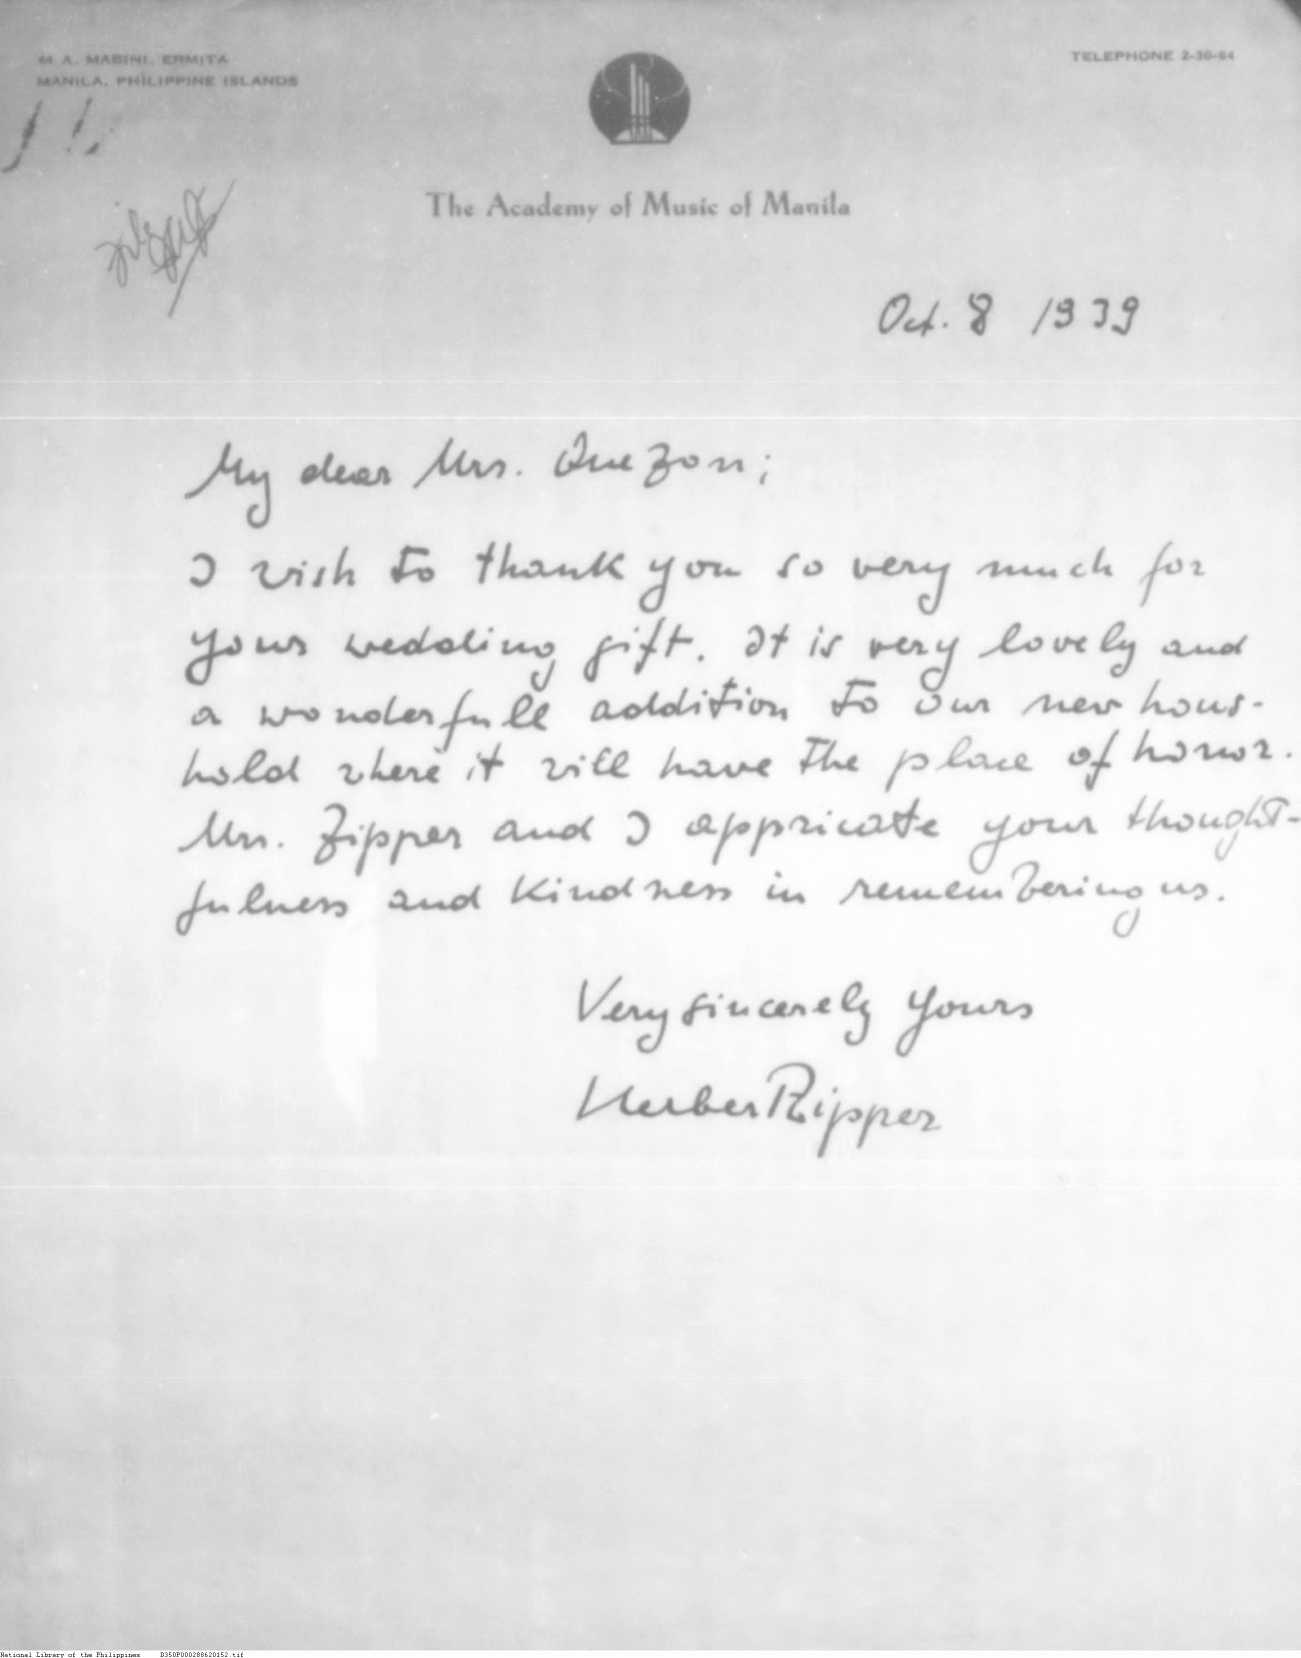 44 A. MABINI, ERMITA
MANILA, PHILIPPINE ISLANDS
TELEPHONE 2-30-64
The Academy of Music of Manila
Oct. 8 1939
My dear Mrs. Quezon;
I wish to thank you so very much for
your wedding gift. It is very lovely and
a wonderfull addition to our new hous-
hold where it will have the place of honor.
Mrs. Zipper and I appricate your thought-
fulness and kindness in remembering us.
Very sincerely yours
Herbert Zipper
National Library of the Philippines D350P000288620152.tif